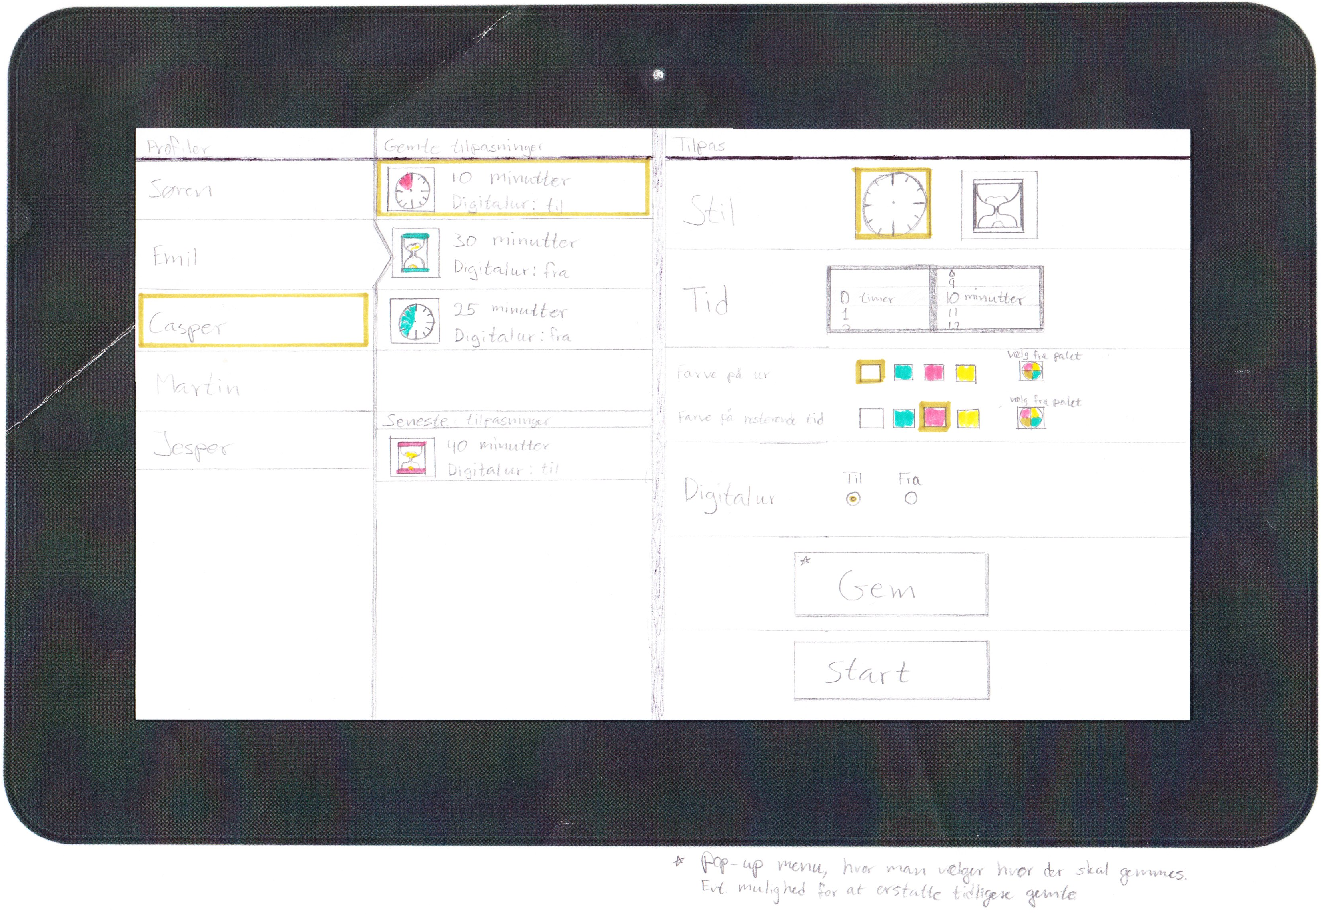 Profiler
Søren
Emil
Casper
Martin
Jesper
Gemte tilpasninger
10 minutter
Digitalur: til
30 minutter
Digitalur: fra
25 minutter
Digitalur: fra
Seneste tilpasninger
40 minutter
Digitalur: til
Tilpas
Stil
Tid
0 timer
1
2
8
9
10 minutter
11
12
Farve på ur
Vælg fra palet
Farve på resterende tid
Vælg fra palet
Digitalur
Til Fra
* Gem
Start
* Pop-up menu, hvor man vælger hvor der skal gemmes.
Evt mulighed for at erstatte tidligere gemte